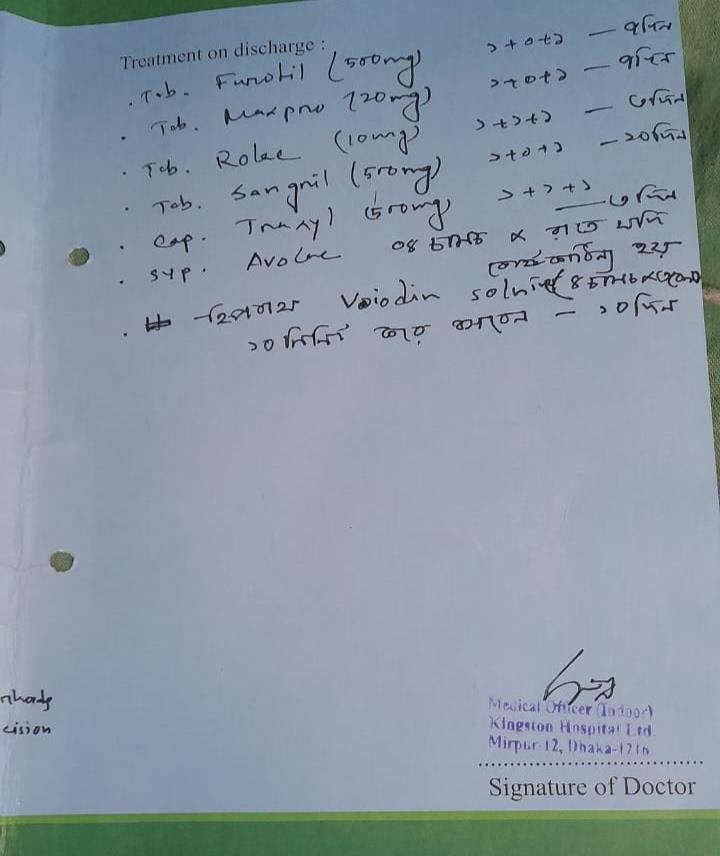 Treatment on discharge :
. Tab. Furotil (500mg) ১+০+১ — ৭দিন
. Tab. Maxpro (20mg) ১+০+১ — ৭দিন
. Tab. Rolac (10mg) ১+১+১ — ৩দিন
. Tab. Sangnil (500mg) ১+০+১ — ১০দিন
. Cap. Traxyl (500mg) ১+১+১ — ৩দিন
. Syp. Avolac ০৪ চামচ রাতে যদি
কোষ্ঠকাঠিন্য হয়
. Voiodin ৪ চামচ
১০ মিনিট করে — ১০দিন
cision
Medical Officer (Indoor)
Kingston Hospital Ltd.
Mirpur-12, Dhaka-1216
Signature of Doctor